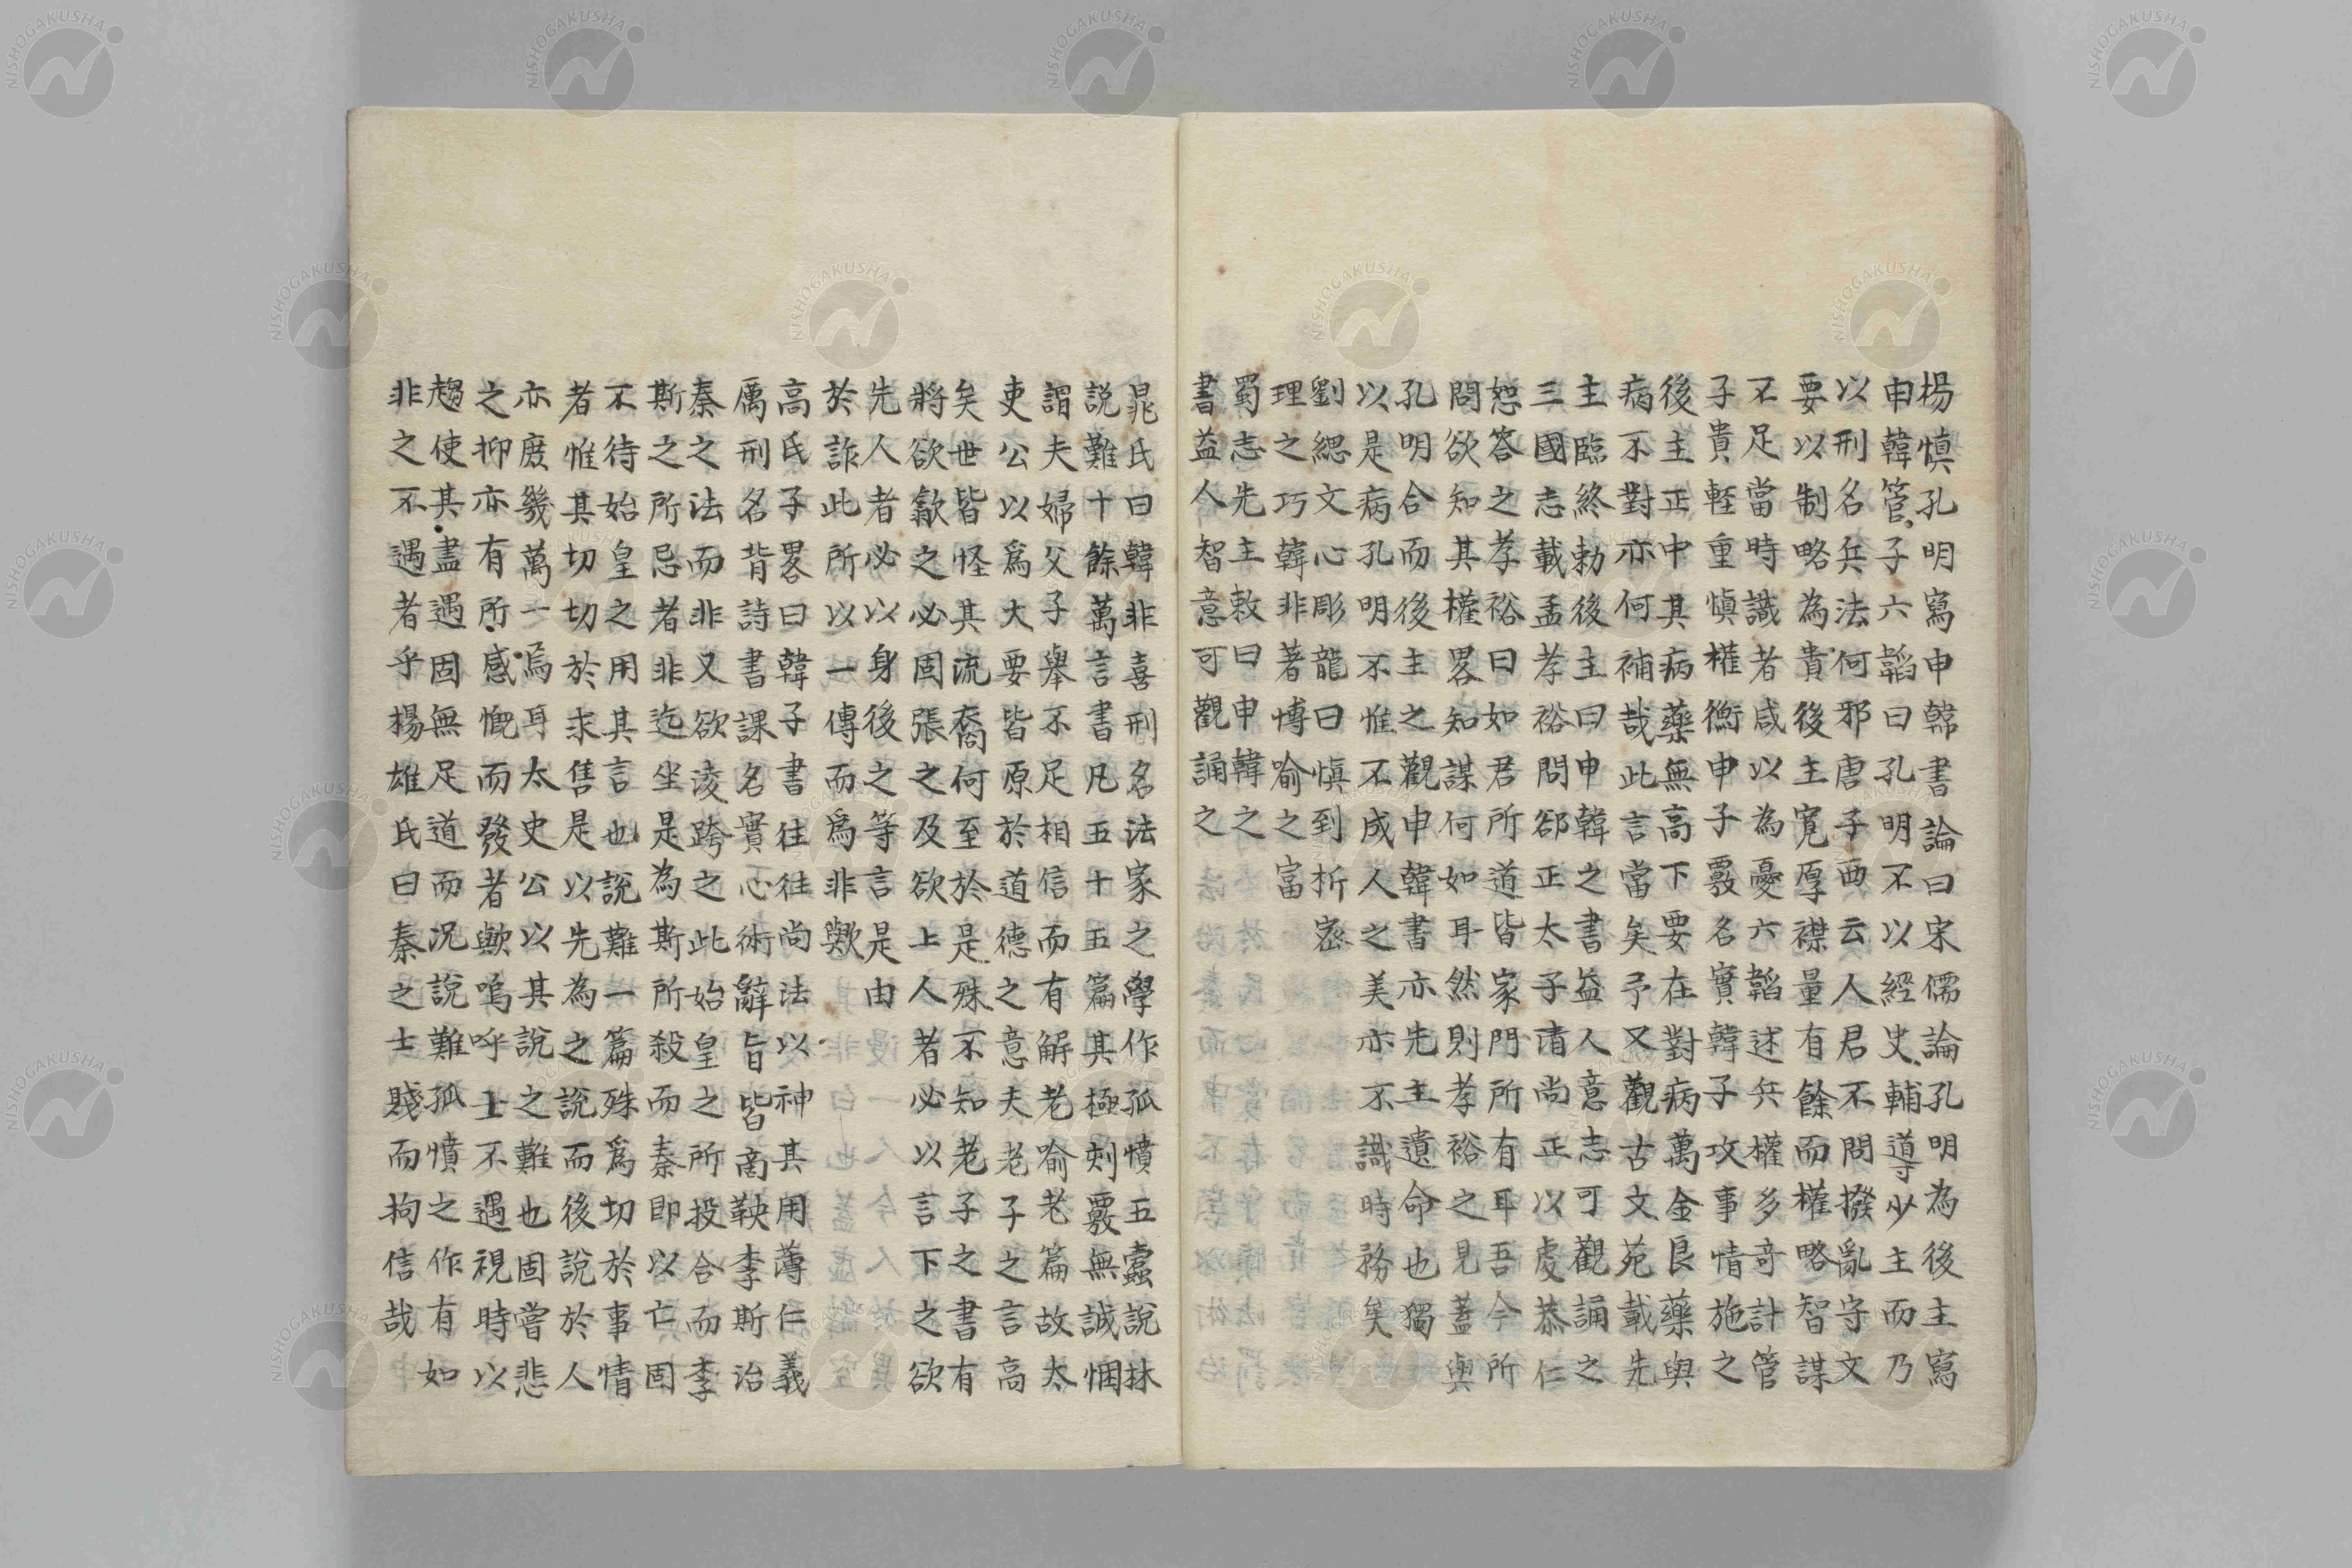 楊慎孔明寫申韓書論曰宋儒論孔明為後主寫
申韓管子六韜曰孔明不以經史輔導少主而乃
以刑名兵法何邪唐子西云人君不問撥亂守文
要以制略為貴後主寛厚襟量有餘而權略智謀
不足當時識者咸以為憂六韜述兵權多奇計管
子貴軽重慎權衡申子覈名實韓子攻事情施之
後主正中其病藥無高下要在對病萬金良藥與
病不對亦何補哉此言當矣予又觀古文苑載先
主臨終勅後主曰申韓之書益人意志可觀誦之
三國志載孟孝裕問郤正太子清尚正以虔恭仁
恕答之孝裕曰如君所道皆家門所有耳吾今所
問欲知其權畧知謀何如耳然則孝裕之見蓋與
孔明合而後主之觀申韓書亦先主遺命也獨
以是病孔明不惟不成人之美亦不識時務矣
劉勰文心彫龍曰慎到析宻
理之巧韓非著博喻之富
蜀志先主敕曰申韓之
書益人智意可觀誦之
晁氏曰韓非喜刑名法家之學作孤憤五蠹說林
説難十餘萬言書凡五十五篇其極刻覈無誠悃
謂夫婦父子舉不足相信而有解老喻老篇故太
吏公以爲大要皆原於道德之意夫老子之言高
矣世皆怪其流裔何至於是殊不知老子之書有
將欲歙之必固張之及欲上人者必以言下之欲
先人者必以身後之等言是由
於詐此所以一傳而爲非歟
高氏子畧曰韓子書往往尚法以神其用薄仁義
厲刑名背詩書課名實心術辭旨皆商鞅李斯治
秦之法而非又欲淩跨之此始皇之所投合而李
斯之所忌者非迄坐是為斯所殺而秦即以亡固
不待始皇之用其言也說難一篇殊爲切於事情
者惟其切切於求售是以先為之說而後説於人
亦庶幾萬一焉耳太史公以其説之難也固嘗悲
之抑亦有所感慨而發者歟嗚呼士不遇視時以
趨使其盡遇固無足道而况說難孤憤之作有如
非之不遇者乎楊雄氏曰秦之士賤而拘信哉